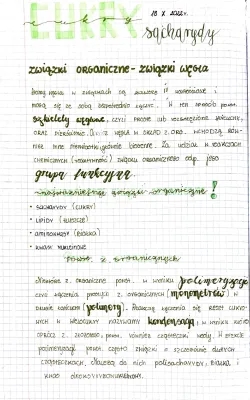 CUKRY
cukry
18 X 2022r.
sacharydy
związki organiczne - związki węgla
Atomy węgla w związkach są zawsze IV wartościowe i
mogą się ze sobą bezpośrednio łączyć. W ten sposób powst.
szkielety węglowe, czyli proste lub rozgałęzione łańcuchy,
oraz pierścienie. Oprócz węgla w skład z. org. wchodzą rów-
nież inne pierwiastki głównie biogenne. Za udział w reakcjach
chemicznych (reaktywność) związku organicznego odp. jego
grupa funkcyjna
najważniejsze związki organiczne!
• sacharydy (CUKRY)
• lipidy (tłuszcze)
• aminokwasy (białka)
• kwasy nukleinowe
powst. z. organicznych
Niektóre z. organiczne powst. w wyniku polimeryzacji
czyli łączenia prostych z. organicznych (monomerów) w
długie łańcuchy (polimery). Reakcję łączenia się reszt cukro-
wych i aminokwas. nazywamy kondensacją, w wyniku której
oprócz z. złożonego, powst. również cząsteczki wody. W efekcie
polimeryzacji powst. często związki o szczególnie dużych
cząsteczkach. Należą do nich polisacharydy, białka i
kwas deoksyrybonukleinowy.